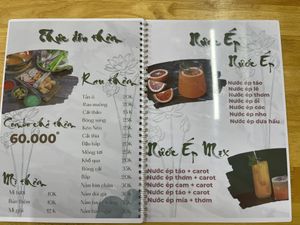 Thực đơn thêm
Rau thêm
Tần ô 20K
Rau muống 20K
Cải thảo
Bông súng
Kèo Nèo
Cải thìa
Đậu bắp
Mồng tơi
Khổ qua 20K
Bông cải
Bắp 20K
Nấm kim châm
Nấm đùi gà
60.000
Mì thêm
Mì tươi 10K
Bún thêm
Mì gói
Nước Ép
Nước ép táo
Nước ép lê
Nước ép thơm
Nước ép ổi
Nước ép cóc
Nước ép nho
Nước ép dưa hấu
Nước Ép Mix
Nước ép táo + carot
Nước ép thơm + carot
Nước ép cam + carot
Nước ép táo + carot
Nước ép mía + thơm